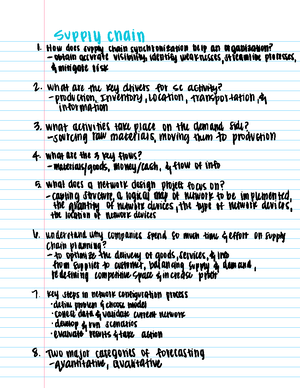 Supply chain
1. How does supply chain synchronization help an organization?
- obtain accurate visibility, identify weaknesses, streamline processes,
& mitigate risk
2. What are the key drivers for SC activity?
- production, Inventory, Location, Transportation, &
information
3. What activities take place on the demand side?
- sourcing raw materials, moving them to production
4. What are the 3 key flows?
- materials/goods, money/cash, & flow of info
5. What does a network design project focus on?
- costing structure, a logical map of network to be implemented,
the quantity of network devices, the type of network devices,
the location of network devices
6. Understand why companies spend so much time & effort on supply
chain planning?
- to optimize the delivery of goods, services, & info
from supplier to customer, balancing supply & demand,
redefining competitive space & increase profit
7. Key steps in network configuration process
· define problem & choose model
· collect data & validate current network
· develop & run scenarios
· evaluate results & take action
8. Two major categories of forecasting
- Quantitative, Qualitative